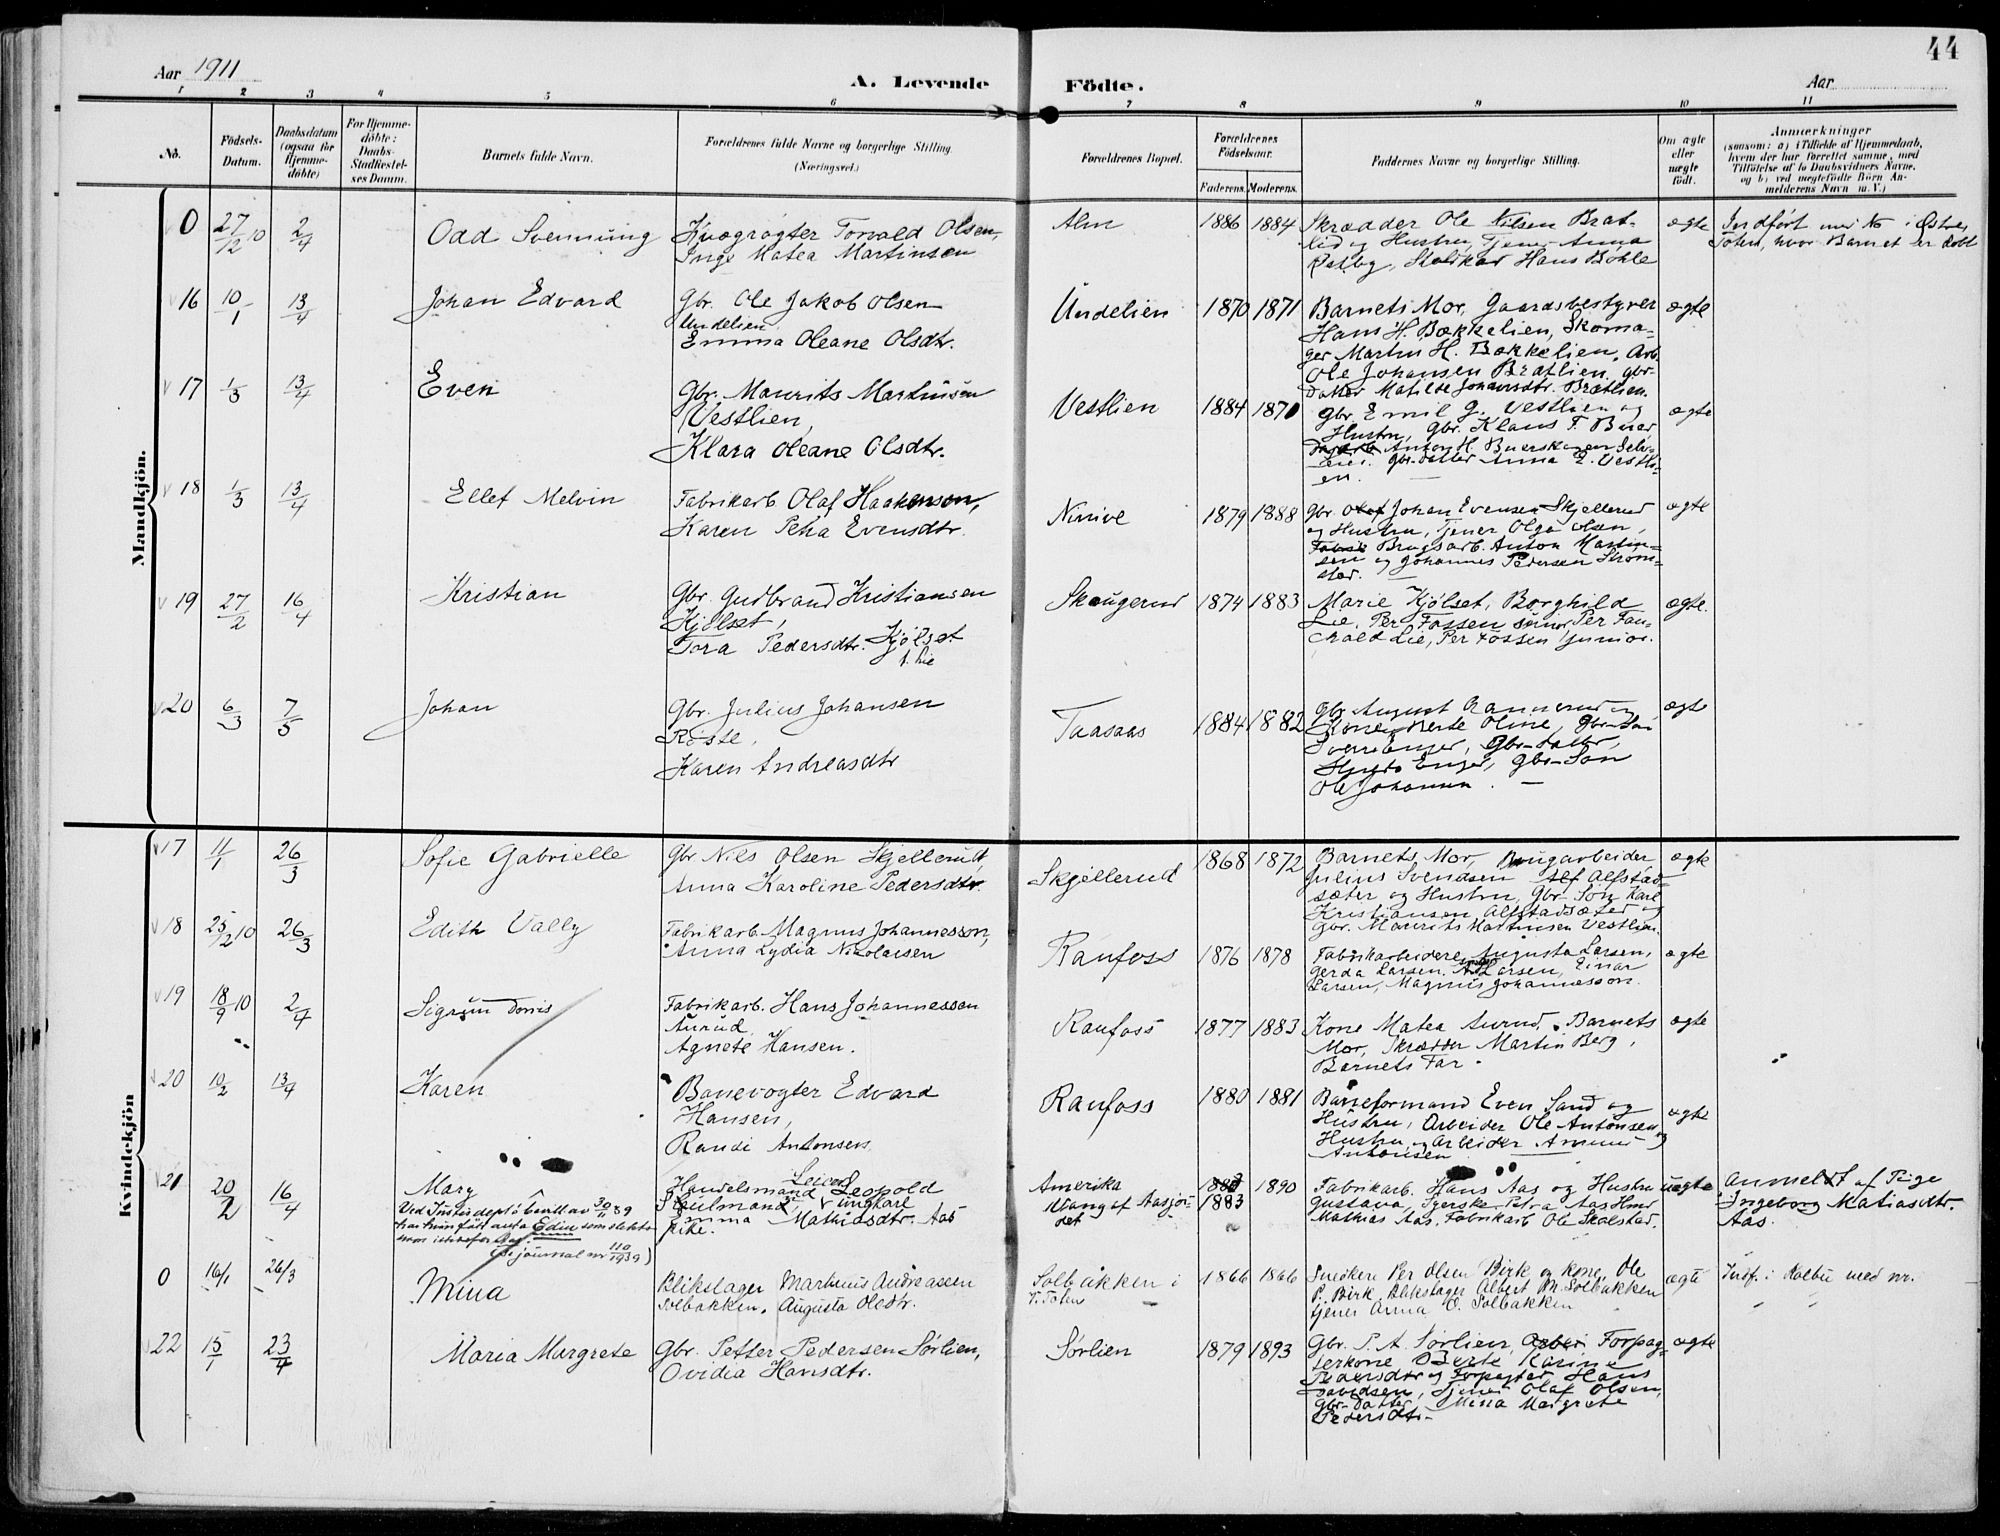 44
Aar 1911
A. Levende
Födte.
Aar
1 2 3 4 5 6 7 8 9 10 11
No.
Födsels-
Datum.
Daabsdatum
(ogsaa for
Hjemme-
döbte)
For Hjemme-
döbte:
Daabs-
Stadfæstel-
ses Datum.
Barnets fulde Navn.
Forældrenes fulde Navne og borgerlige Stilling
(Næringsvei.)
Forældrenes Bopæl.
Forældrenes
Födselsaar.
Faderens. Moderens.
Faddernes Navne og borgerlige Stilling.
Om ægte
eller
uægte
födt.
Anmærkninger
(saasom: a) i Tilfælde af Hjemmedaab,
hvem der har forrettet samme, med
Tilföielse af to Daabsvidners Navne,
og b) ved uægtefödte Börn An-
melderens Navn m. V.)
Mandkjön.
0 27/12 10 2/4 Odd Svennung
Kvægrøgter Torvald Olsen,
Inge Matea Martinsen
Alm 1886 1884
Skrædder Ole Nilsen Brat-
lid og Hustru, Tjener Anna
Røisby, Skoldkar Hans Bøhle
ægte
Indført med No i Østre
Toten, hvor Barnet er døbt
16 10/1 13/4 Johan Edvard
Gbr. Ole Jakob Olsen
Undelien
Emma Oleane Olsdtr.
Undelien 1870 1871
Barnets Mor, Gaardsbestyrer
Hans H. Bækkelien, Skoma-
ger Martin H. Bækkelien, Arb.
Ole Johansen Brætlien, gbr-
datter Matilde Johansdtr. Brætlien.
ægte
17 1/3 13/4 Even
Gbr. Maurits Martinsen
Vestlien,
Klara Oleane Olsdtr.
Vestlien 1884 1870
Gbr Emil G. Vestlien og
Hustru, Gbr. Klaus F. Buer
Anton H. Buerskogen
gbr-datter Anna E. Vestli-
en.
ægte
18 1/3 13/4 Ellef Melvin
Fabrikarb Olaf Haakenson,
Karen Petra Evensdtr.
Ninive 1879 1888
Gbr. Olaf Johan Evensen Skjellerud
og Hustru, Tjener Olga Olsen,
Fabrik Brugsarb. Anton Martin-
sen og Johannes Pedersen Strøm-
stad.
ægte
19 27/2 16/4 Kristian
Gbr. Gudbrand Kristiansen
Kjølset,
Tora Pedersdtr. Kjølset
f. Lie
Skaugerud 1874 1883
Marie Kjølset, Borghild
Lie, Per Fossen senior, Per Fau-
chald Lie, Per Fossen junior.
ægte.
20 6/3 7/5 Johan
Gbr. Julius Johansen
Røste,
Karen Andreasdtr
Taasaas 1884 1882
Gbr August Rannerud og
Kone Berte Oline, Gbr-Søn
Sverre Enger, Gbr-datter,
Enger, Gbr-Søn
Ole Johansen.
ægte
Kvindekjön
17 11/1 26/3 Sofie Gabrielle
Gbr Nils Olsen Skjellerud,
Anna Karoline Pedersdtr.
Skjellerud 1868 1872
Barnets Mor, Brugarbeider
Julius Svendsen Alf Alfstad-
sæter og Hustru, Gbr-Søn Karl
Kristiansen Alfstadsæter og
Gbr. Maurits Martinsen Vestlien.
ægte
18 25/12 10 26/3 Edith Vally
Fabrikarb. Magnus Johannesson,
Anna Lydia Nikolaisen
Raufoss 1876 1878
Fabrikarbeidere Augusta Larsen,
Gerda Larsen, Larsen, Einar
Larsen, Magnus Johannesson.
ægte
19 18/9 10 2/4 Sigrun Dorris
Fabrikarb. Hans Johannessen
Aurud,
Agnete Hansen.
Raufoss 1877 1883
Kone Matea Aurud, Barnets
Mor, Skrædder Martin Berg,
Barnets Far.
ægte
20 10/2 13/4 Karen
Banevogter Edvard
Hansen,
Randi Antonsen
Raufoss 1880 1881
Baneformand Even Sand og
Hustru, Arbeider Ole Antonsen og
Hustru, Arbeider Amund
Antonsen
ægte
21 20/2 16/4 Mary
Ved Justisdept's bevill av 30/11 39
har hun fått anta Edin som slekts-
navn istedenfor Aas.
(Se journal nr 110/1939)
Handelsmand Leopold
Paulmand, ungkarl
Emma Mathiasdtr. Aas
pike.
Amerika
Utang af Aasjor-
det
1883 1890
Fabrikarb. Hans Aas og Hustru
Gustava, Tyerske Petra Aas Hmd
Mathias Aas, Fabrikarb Ole Skolstad.
uægte
Anmeldt af Pige
Ingeborg Matiasdtr.
Aas.
0 16/1 26/3 Mina
Blikslager Martinus Andreassen
Solbakken, Augusta Olsdtr.
Solbakken i
V. Toten
1866 1866
Snekker Per Olsen Birk og kone, Ole
P. Birk, Blikslager Albert M. Solbakken
tjener Anna O. Solbakken
ægte
Indf. i Kolbu med nr.
22 15/1 23/4 Maria Margrete
Gbr. Petter Pedersen Sørlien,
Ovidia Hansdtr.
Sørlien 1879 1893
Gbr. P. A. Sørlien, Forpag-
terkone Berte Karine
Pedersdtr og Forpagter Hans
Davidsen, Tjener Olaf Olsen,
Gbr-Datter Mina Margrete
Pedersdtr.
ægte